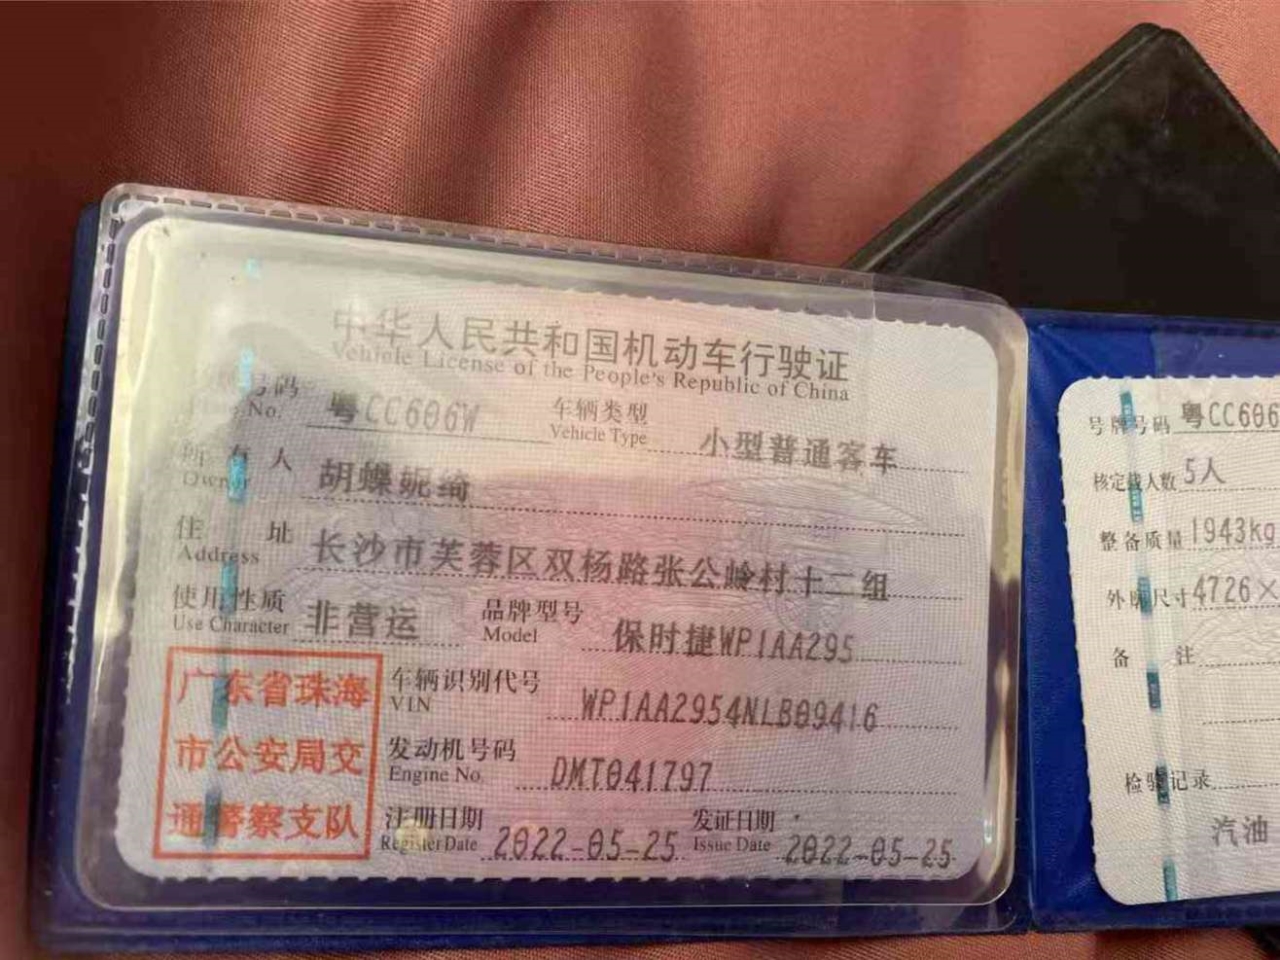 中华人民共和国机动车行驶证
Vehicle License of the People's Republic of China
号牌号码 粤CC606W 车辆类型 小型普通客车
Plate No. Vehicle Type
所有人 胡蝶妮绮
Owner
住址 长沙市芙蓉区双杨路张公岭村十二组
Address
使用性质 非营运 品牌型号 保时捷WP1AA295
Use Character Model
广东省珠海
市公安局交
通警察支队
车辆识别代号 WP1AA2954NLB09416
VIN
发动机号码 DMT041797
Engine No.
注册日期 2022-05-25 发证日期 2022-05-25
Register Date Issue Date
号牌号码 粤CC606
核定载人数 5人
整备质量 1943kg
外廓尺寸 4726×
备注
检验记录
汽油